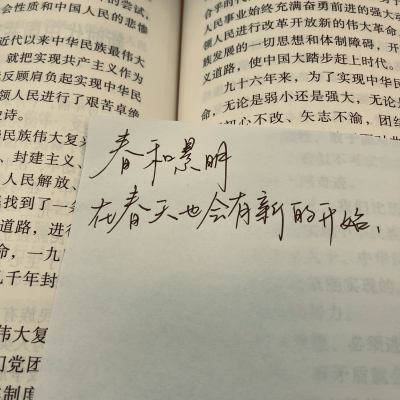 的尝试，
会性质和中国人民的悲惨
近代以来中华民族最伟大
就把实现共产主义作为
反顾肩负起实现中华
领人民进行了艰苦卓绝
诗。
民族伟大复
、封建主义、
人民解放、
找到了一
道路，进行
命，一九
几千年封
伟大复
们党团
体制度
人民事业始终充满奋勇前进的强大
领人民进行改革开放新的伟大革命
族发展的一切思想和体制障碍，开
义道路，使中国大踏步赶上时代。
九十六年来，为了实现中华
，无论是弱小还是强大，无论
初心不改、矢志不渝，团
春和景明
在春天也会有新的开始，